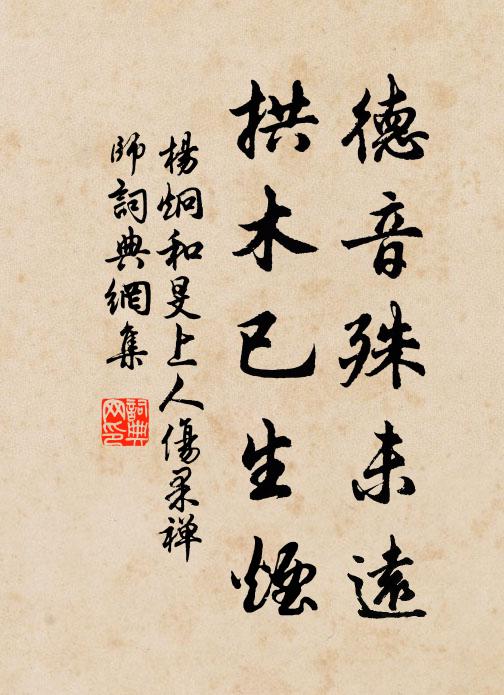 德音殊未遠
拱木已生煙
楊炯和旻上人傷果禅
師詞典網集
詞典网印